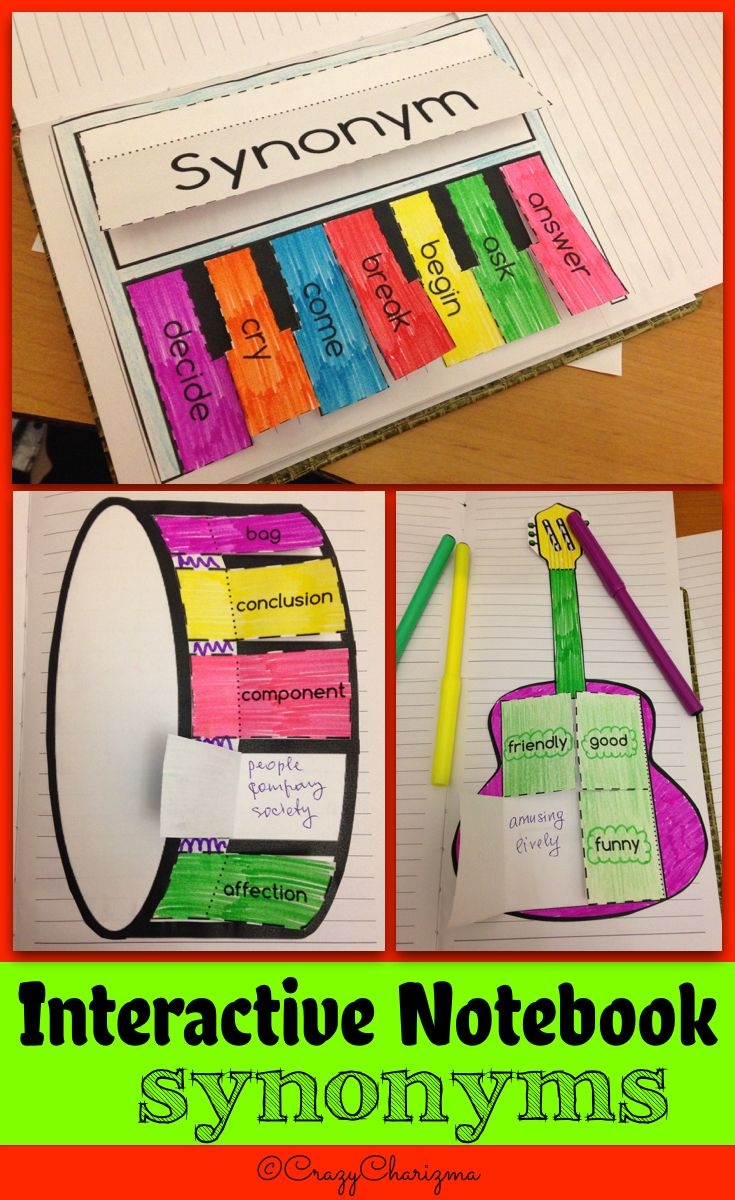 Synonym
decide
cry
come
break
begin
ask
answer
bag
conclusion
component
people
company
society
affection
friendly
good
amusing
lively
funny
Interactive Notebook
synonyms
©CrazyCharizma